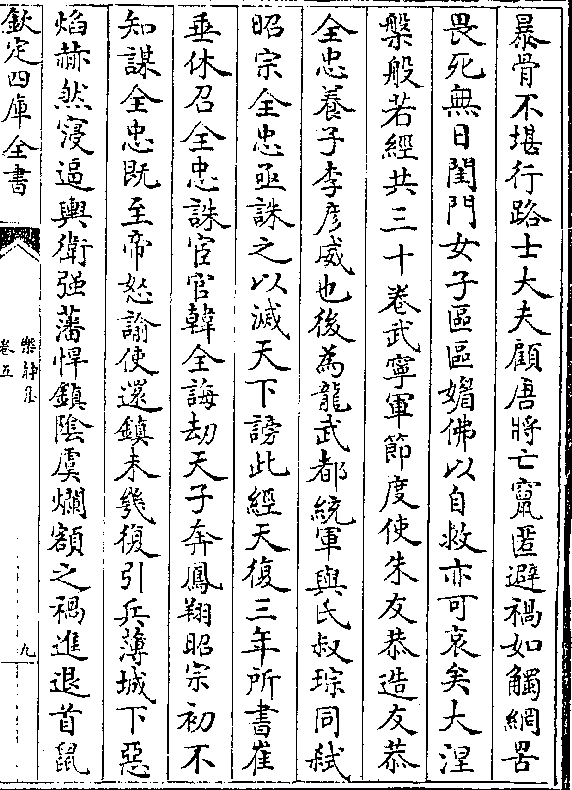 暴骨不堪行路士大夫顧唐將亡竄匿避禍如觸網罟
畏死無日閨門女子區區媚佛以自救亦可哀矣大涅
槃般若經共三十卷武寧軍節度使朱友恭造友恭
全忠養子李彦威也後為龍武都統軍與氏叔琮同弑
昭宗全忠亟誅之以滅天下謗此經天復三年所書崔
垂休召全忠誅宦官韓全誨刧天子奔鳳翔昭宗初不
知謀全忠既至帝怒諭使還鎮未幾復引兵薄城下惡
焰赫然寖逼輿衛强藩悍鎮陰虞爛額之禍進退首鼠
欽定四庫全書
樂静集
卷五
九